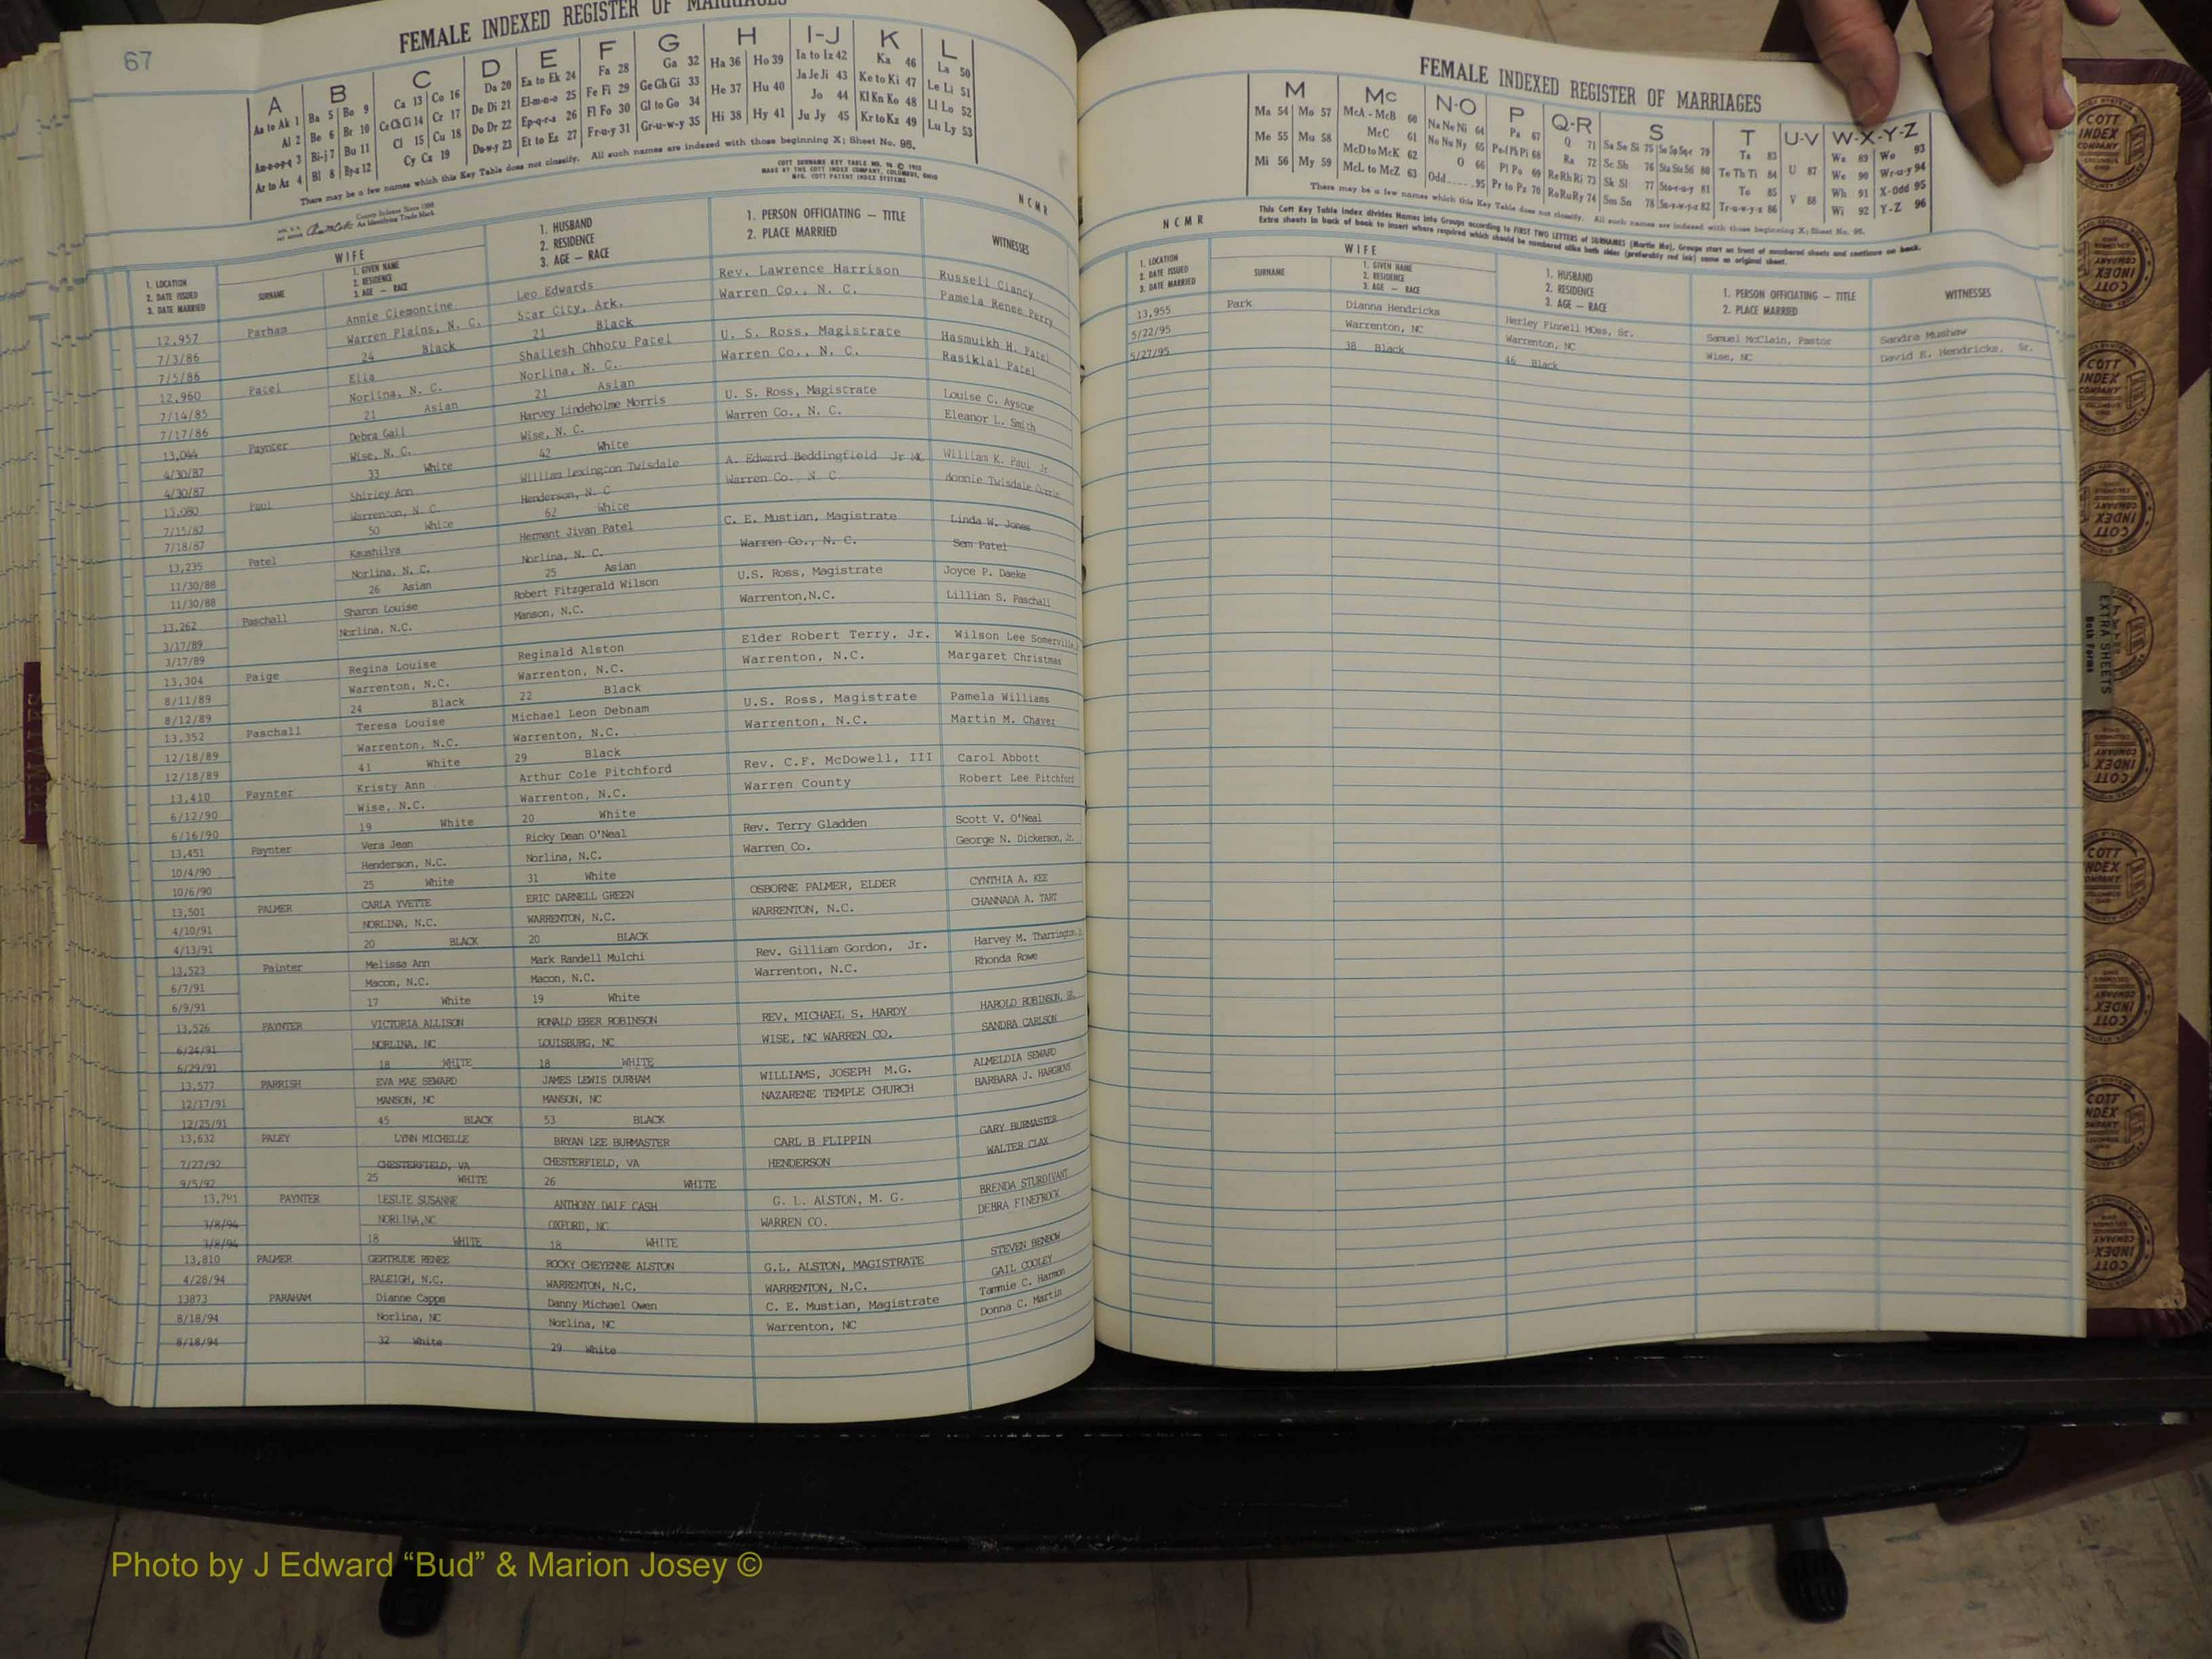 67
FEMALE INDEXED REGISTER OF MARRIAGES
A B C D E F G H I-J K L
Aa to Ak 1 Ba 5 Bo 9 Ca 13 Co 16 Da 20 Ea to Ek 24 Fa 28 Ga 32 Ha 36 Ho 39 Ia to Iz 42 Ka 46 La 50
Al 2 Be 6 Br 10 Ce Ch Ci 14 Cr 17 De Di 21 El-m-n-o 25 Fe Fi 29 Ge Gh Gi 33 He 37 Hu 40 Ja Je Ji 43 Ke to Ki 47 Le Li 51
Am-n-o-p-t 3 Bi-j 7 Bu 11 Cl 15 Cu 18 Do Dr 22 Ep-q-r-s 26 Fl Fo 30 Gl to Go 34 Hi 38 Hy 41 Jo 44 Kl Kn Ko 48 Ll Lo 52
Ar to Az 4 Bl 8 By-z 12 Cy Cz 19 Du-w-y 23 Et to Ez 27 Fr-u-y 31 Gr-u-w-y 35 Ju Jy 45 Kr to Kz 49 Lu Ly 53
There may be a few names which this Key Table does not classify. All such names are indexed with those beginning X; Sheet No. 95.
COTT SURNAME KEY TABLE NO. 96 © 1952
MADE BY THE COTT INDEX COMPANY, COLUMBUS, OHIO
MFG. COTT PATENT INDEX SYSTEMS
County Indexes Since 1888
An Identifying Trade Mark
NCMR
1. LOCATION
2. DATE ISSUED
3. DATE MARRIED
WIFE
SURNAME
1. GIVEN NAME
2. RESIDENCE
3. AGE — RACE
1. HUSBAND
2. RESIDENCE
3. AGE — RACE
1. PERSON OFFICIATING — TITLE
2. PLACE MARRIED
WITNESSES
12,957 Parham Annie Clemontine Leo Edwards Rev. Lawrence Harrison Russell Clancy
7/3/86 Warren Plains, N. C. Star City, Ark. Warren Co., N. C. Pamela Renee Perry
7/5/86 24 Black 21 Black
12,960 Patel Ella Shailesh Chhotu Patel U. S. Ross, Magistrate Hasmuikh H. Patel
7/14/85 Norlina, N. C. Norlina, N. C. Warren Co., N. C. Rasiklal Patel
7/17/86 21 Asian 21 Asian
13,044 Paynter Debra Gail Harvey Lindeholme Morris U. S. Ross, Magistrate Louise C. Ayscue
4/30/87 Wise, N. C. Wise, N. C. Warren Co., N. C. Eleanor L. Smith
4/30/87 33 White 42 White
13,080 Paul Shirley Ann William Lexington Twisdale A. Edward Beddingfield Jr MG William K. Paul Jr
7/15/87 Warrenton, N. C. Henderson, N. C Warren Co., N. C. Bonnie Twisdale
7/18/87 50 White 62 White
13,235 Patel Kaushilya Hermant Jivan Patel C. E. Mustian, Magistrate Linda W. Jones
11/30/88 Norlina, N. C. Norlina, N. C. Warren Co., N. C. Sem Patel
11/30/88 26 Asian 25 Asian
13,262 Paschall Sharon Louise Robert Fitzgerald Wilson U.S. Ross, Magistrate Joyce P. Daeke
3/17/89 Norlina, N.C. Manson, N.C. Warrenton,N.C. Lillian S. Paschall
3/17/89
13,304 Paige Regina Louise Reginald Alston Elder Robert Terry, Jr. Wilson Lee Somerville
8/11/89 Warrenton, N.C. Warrenton, N.C. Warrenton, N.C. Margaret Christmas
8/12/89 24 Black 22 Black
13,352 Paschall Teresa Louise Michael Leon Debnam U.S. Ross, Magistrate Pamela Williams
12/18/89 Warrenton, N.C. Warrenton, N.C. Warrenton, N.C. Martin M. Chavez
12/18/89 41 White 29 Black
13,410 Paynter Kristy Ann Arthur Cole Pitchford Rev. C.F. McDowell, III Carol Abbott
6/12/90 Wise, N.C. Warrenton, N.C. Warren County Robert Lee Pitchford
6/16/90 19 White 20 White
13,451 Paynter Vera Jean Ricky Dean O'Neal Rev. Terry Gladden Scott V. O'Neal
10/4/90 Henderson, N.C. Norlina, N.C. Warren Co. George N. Dickerson, Jr.
10/6/90 25 White 31 White
13,501 PALMER CARLA YVETTE ERIC DARNELL GREEN OSBORNE PALMER, ELDER CYNTHIA A. KEE
4/10/91 NORLINA, N.C. WARRENTON, N.C. WARRENTON, N.C. CHANNADA A. TART
4/13/91 20 BLACK 20 BLACK
13,523 Painter Melissa Ann Mark Randell Mulchi Rev. Gilliam Gordon, Jr. Harvey M. Tharrington
6/7/91 Macon, N.C. Macon, N.C. Warrenton, N.C. Rhonda Rowe
6/9/91 17 White 19 White
13,526 PAYNTER VICTORIA ALLISON RONALD EBER ROBINSON REV. MICHAEL S. HARDY HAROLD ROBINSON, SR.
6/24/91 NORLINA, NC LOUISBURG, NC WISE, NC WARREN CO. SANDRA CARLSON
6/29/91 18 WHITE 18 WHITE
13,577 PARRISH EVA MAE SEWARD JAMES LEWIS DURHAM WILLIAMS, JOSEPH M.G. ALMELDIA SEWARD
12/17/91 MANSON, NC MANSON, NC NAZARENE TEMPLE CHURCH BARBARA J. HARGROVE
12/25/91 45 BLACK 53 BLACK
13,632 PALEY LYNN MICHELLE BRYAN LEE BURMASTER CARL B FLIPPIN GARY BURMASTER
7/27/92 CHESTERFIELD, VA CHESTERFIELD, VA HENDERSON WALTER CLAX
9/5/92 25 WHITE 26 WHITE
13,791 PAYNTER LESLIE SUSANNE ANTHONY DALE CASH G. L. ALSTON, M. G. BRENDA STURDIVANT
3/8/94 NORLINA,NC OXFORD, NC WARREN CO. DEBRA FINEFROCK
3/8/94 18 WHITE 18 WHITE
13,810 PALMER GERTRUDE RENEE ROCKY CHEYENNE ALSTON G.L. ALSTON, MAGISTRATE STEVEN BENBOW
4/28/94 RALEIGH, N.C. WARRENTON, N.C. WARRENTON, N.C. GAIL COOLEY
13873 PARAHAM Dianne Capps Danny Michael Owen C. E. Mustian, Magistrate Tammie C. Harmon
8/18/94 Norlina, NC Norlina, NC Warrenton, NC Donna C. Martin
8/18/94 32 White 29 White
FEMALE INDEXED REGISTER OF MARRIAGES
M Mc N-O P Q-R S T U-V W-X-Y-Z
Ma 54 Mo 57 McA - McB 60 Na Ne Ni 64 Pa 67 Q 71 Sa Se Si 75 Sn Sp Sq-r 79 Ta 83 U 87 Wa 89 Wo 93
Me 55 Mu 58 McC 61 No Nu Ny 65 Pe-f Ph Pi 68 Ra 72 Sc Sh 76 Sta Ste Sti 80 Te Th Ti 84 V 88 We 90 Wr-u-y 94
Mi 56 My 59 McD to McK 62 O 66 Pl Po 69 Re Rh Ri 73 Sk Sl 77 Sto-r-u-y 81 To 85 Wh 91 X-Odd 95
McL to McZ 63 Odd 95 Pr to Pz 70 Ro Ru Ry 74 Sm Sn 78 Su-v-w-y-z 82 Tr-u-w-y-z 86 Wi 92 Y-Z 96
There may be a few names which this Key Table does not classify. All such names are indexed with those beginning X; Sheet No. 95.
NCMR
This Cott Key Table Index divides Names into Groups according to FIRST TWO LETTERS of SURNAMES (Martin Ma), Groups start on front of numbered sheets and continue on back.
Extra sheets in back of book to insert where required which should be numbered alike both sides (preferably red ink) same as original sheet.
1. LOCATION
2. DATE ISSUED
3. DATE MARRIED
WIFE
SURNAME
1. GIVEN NAME
2. RESIDENCE
3. AGE — RACE
1. HUSBAND
2. RESIDENCE
3. AGE — RACE
1. PERSON OFFICIATING — TITLE
2. PLACE MARRIED
WITNESSES
13,955 Park Dianna Hendricks Herley Finnell MOss, Sr. Samuel McClain, Pastor Sandra Mushaw
5/22/95 Warrenton, NC Warrenton, NC Wise, NC David E. Hendricks, Sr.
5/27/95 38 Black 46 Black
EXTRA SHEETS
Both Forms
COTT INDEX COMPANY
Photo by J Edward “Bud” & Marion Josey ©